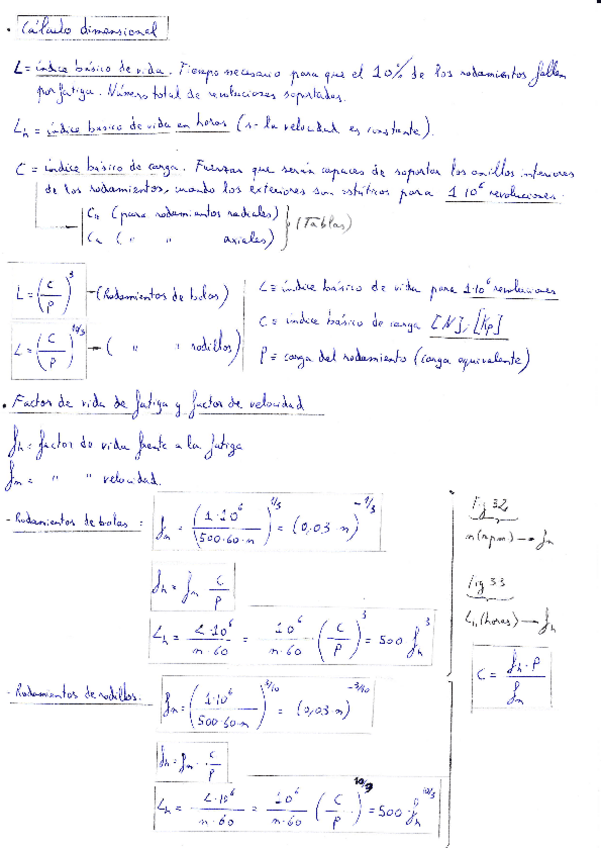 . Cálculo dimensional
L = índice básico de vida. Tiempo necesario para que el 10% de los rodamientos fallen
por fatiga. Número total de revoluciones soportadas.
Lh = índice básico de vida en horas (si la velocidad es constante).
C = índice básico de carga. Fuerzas que serán capaces de soportar los anillos interiores
de los rodamientos, cuando los exteriores son estáticos para 1·10^6 revoluciones.
(para rodamientos radiales)
Ca ( " " axiales) } (Tablas)
L = (C/P)^3 - (Rodamientos de bolas)
L = (C/P)^10/3 - ( " " rodillos)
L = índice básico de vida para 1·10^6 revoluciones
C = índice básico de carga [N], [Kp]
P = carga del rodamiento (carga equivalente)
. Factor de vida de fatiga y factor de velocidad
fh = factor de vida frente a la fatiga
fn = " " velocidad.
- Rodamientos de bolas = fn = (1·10^6 / 500·60·n)^1/3 = (0,03·n)^-1/3
fh = fn C/P
Lh = L·10^6 / n·60 = 10^6 / n·60 · (C/P)^3 = 500 fh^3
fig 32
n (rpm) → fn
fig 33
Lh (horas) → fh
C = fh·P / fn
- Rodamientos de rodillos.
fn = (1·10^6 / 500·60·n)^3/10 = (0,03·n)^-3/10
fh = fn · C/P
Lh = L·10^6 / n·60 = 10^6 / n·60 (C/P)^10/9 = 500·fh^10/3